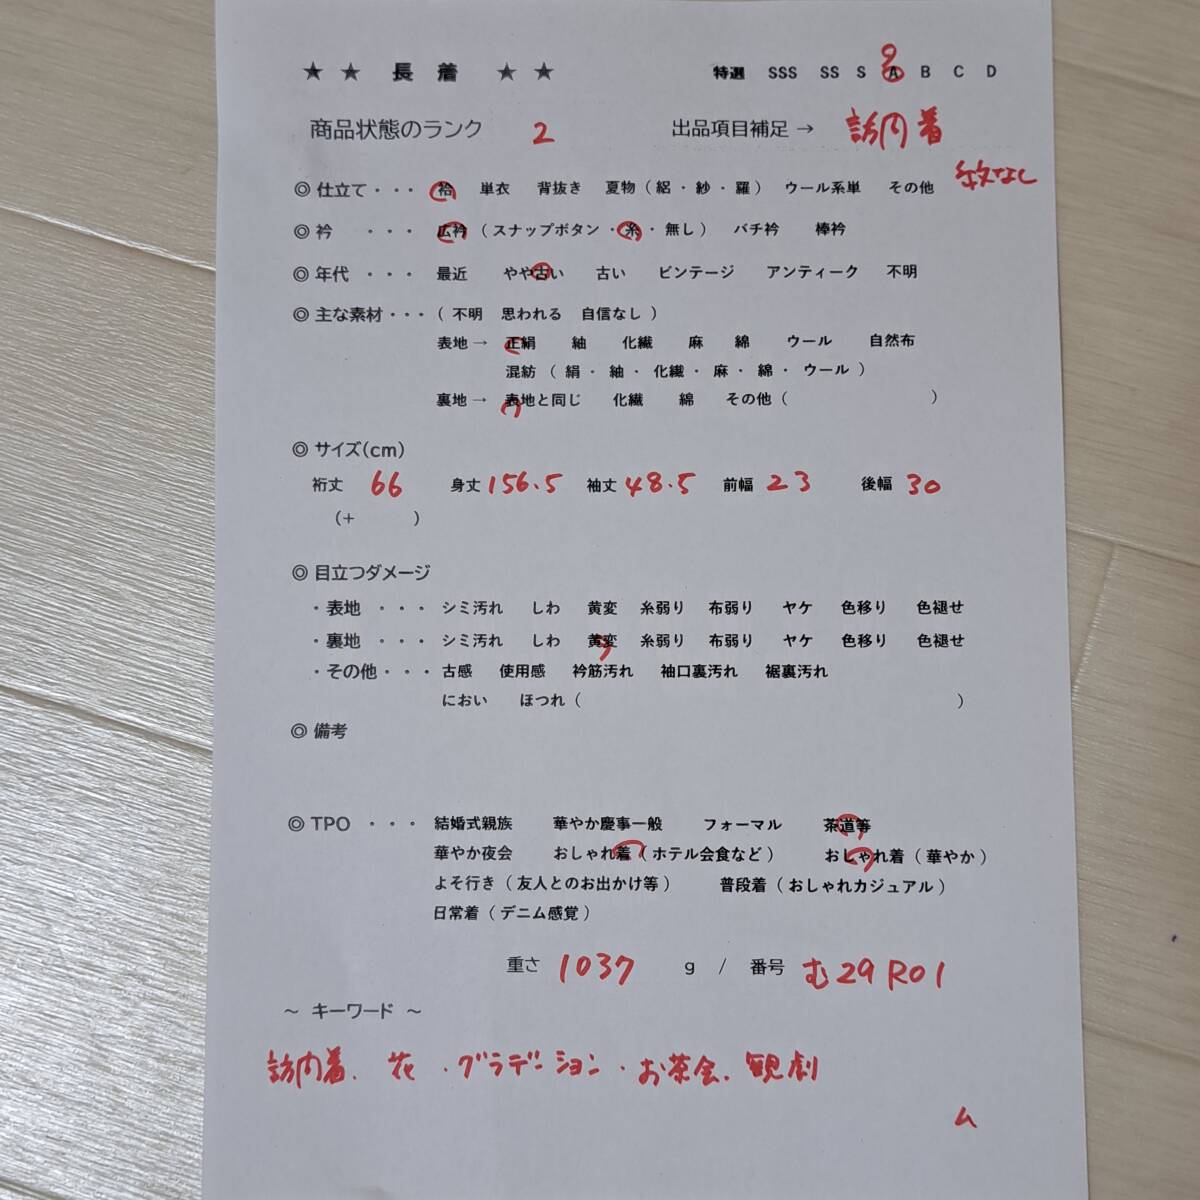 ★ ★ 長 着 ★ ★ 特選 SSS SS S A B C D
商品状態のランク 2 出品項目補足 → 訪問着
紋なし
◎ 仕立て ・・・ 袷 単衣 背抜き 夏物 ( 絽 ・ 紗 ・ 羅 ) ウール系単 その他
◎ 衿 ・・・ 広衿 ( スナップボタン ・ 糸 ・ 無し ) バチ衿 棒衿
◎ 年代 ・・・ 最近 やや古い 古い ビンテージ アンティーク 不明
◎ 主な素材 ・・・ ( 不明 思われる 自信なし )
表地 → 正絹 紬 化繊 麻 綿 ウール 自然布
混紡 ( 絹 ・ 紬 ・ 化繊 ・ 麻 ・ 綿 ・ ウール )
裏地 → 表地と同じ 化繊 綿 その他 ( )
◎ サイズ(cm)
裄丈 66 身丈 156.5 袖丈 48.5 前幅 23 後幅 30
(+ )
◎ 目立つダメージ
・表地 ・・・ シミ汚れ しわ 黄変 糸弱り 布弱り ヤケ 色移り 色褪せ
・裏地 ・・・ シミ汚れ しわ 黄変 糸弱り 布弱り ヤケ 色移り 色褪せ
・その他 ・・・ 古感 使用感 衿筋汚れ 袖口裏汚れ 裾裏汚れ
におい ほつれ ( )
◎ 備考
◎ TPO ・・・ 結婚式親族 華やか慶事一般 フォーマル 茶道等
華やか夜会 おしゃれ着 ( ホテル会食など ) おしゃれ着 ( 華やか )
よそ行き ( 友人とのお出かけ等 ) 普段着 ( おしゃれカジュアル )
日常着 ( デニム感覚 )
重さ 1037 g / 番号 む29R01
～ キーワード ～
訪問着、花・グラデーション・お茶会、観劇
ム